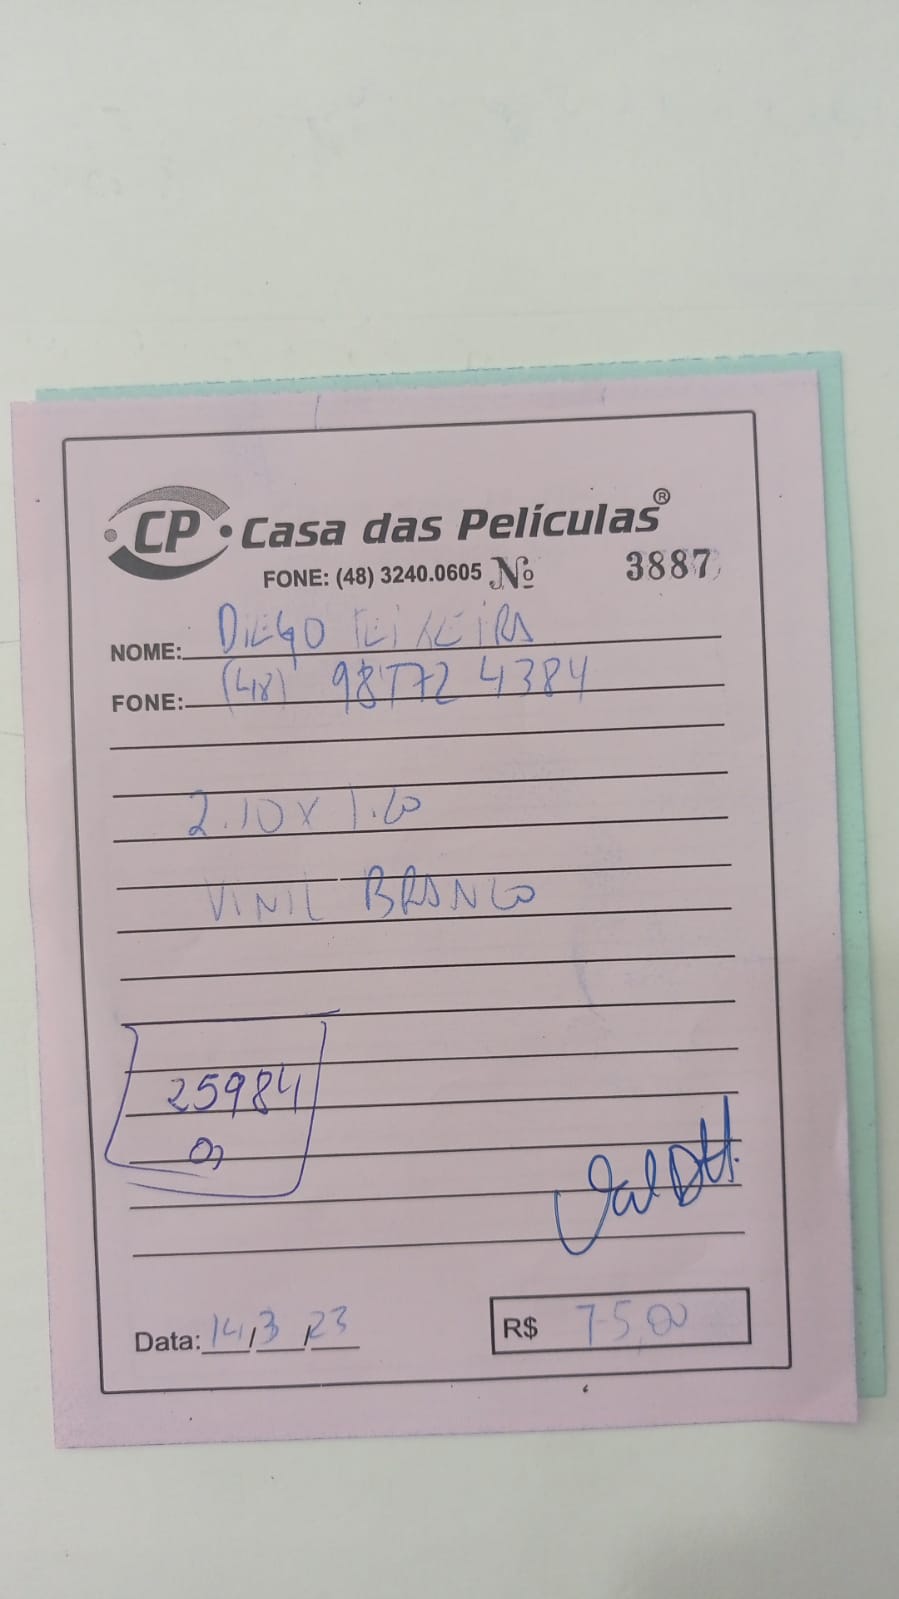 CP Casa das Películas®
FONE: (48) 3240.0605 Nº 3887
NOME: DIEGO TEIXEIRA
FONE: (48) 98772 4384
2.10 x 1.60
VINIL BRANCO
25984
Data: 14/3/23 R$ 75,00